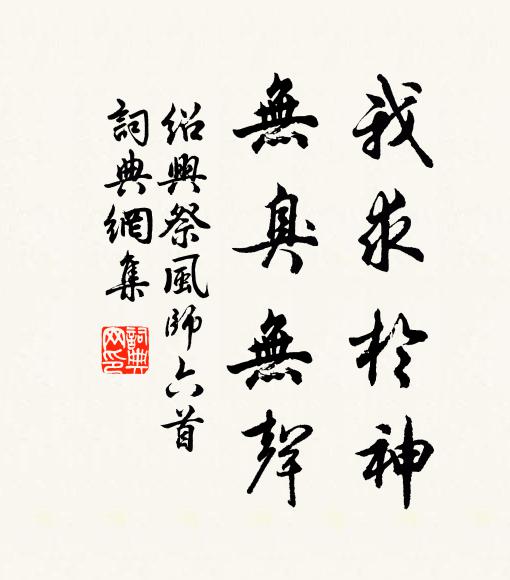 我求於神
無臭無聲
紹興祭風師六首
詞典網集
詞典網印